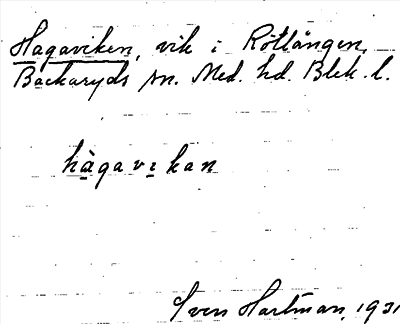 Hagaviken, vik i Rötlången,
Backaryds sn. Med. hd. Blek. l.
hàgavikan
Sven Hartman, 1931